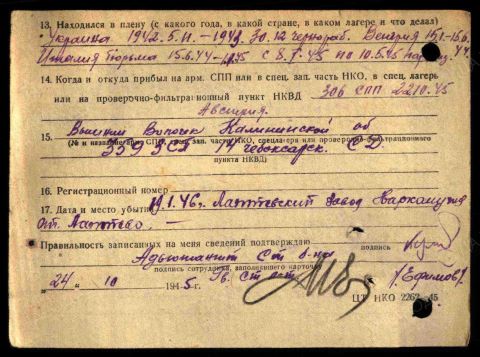 13. Находился в плену (с какого года, в какой стране, в каком лагере и что делал)
Украина 1942. 5.II. - 1943. 30.12 чернораб. Венгрия 15.1.-15.6.
44.
Италия тюрьма 15.6.44 - 1945 с 8.7.45 по 10.8.45
14. Когда и откуда прибыл на арм. СПП или в спец. зап. часть НКО, в спец. лагерь
или на проверочно-фильтрационный пункт НКВД 306 СПП 22.10.45
Австрия.
15. Вышний Волочек Калининской об
(№ и название арм. СПП, зап. части НКО, спецлагеря или проверочно-фильтрационного
359 ЗСП 14 Чебоксарск. СД.
пункта НКВД)
16. Регистрационный номер
17. Дата и место убытия 19.1.46г. Завод
ст.
Правильность записанных на меня сведений подтверждаю
подпись
Адъютант Ст. б-на
подпись сотрудника, заполнявшего карточку
Гв. Ст. л-т
/Ефимов/.
"24" 10 1945 г.
ЦТ НКО 2262-45